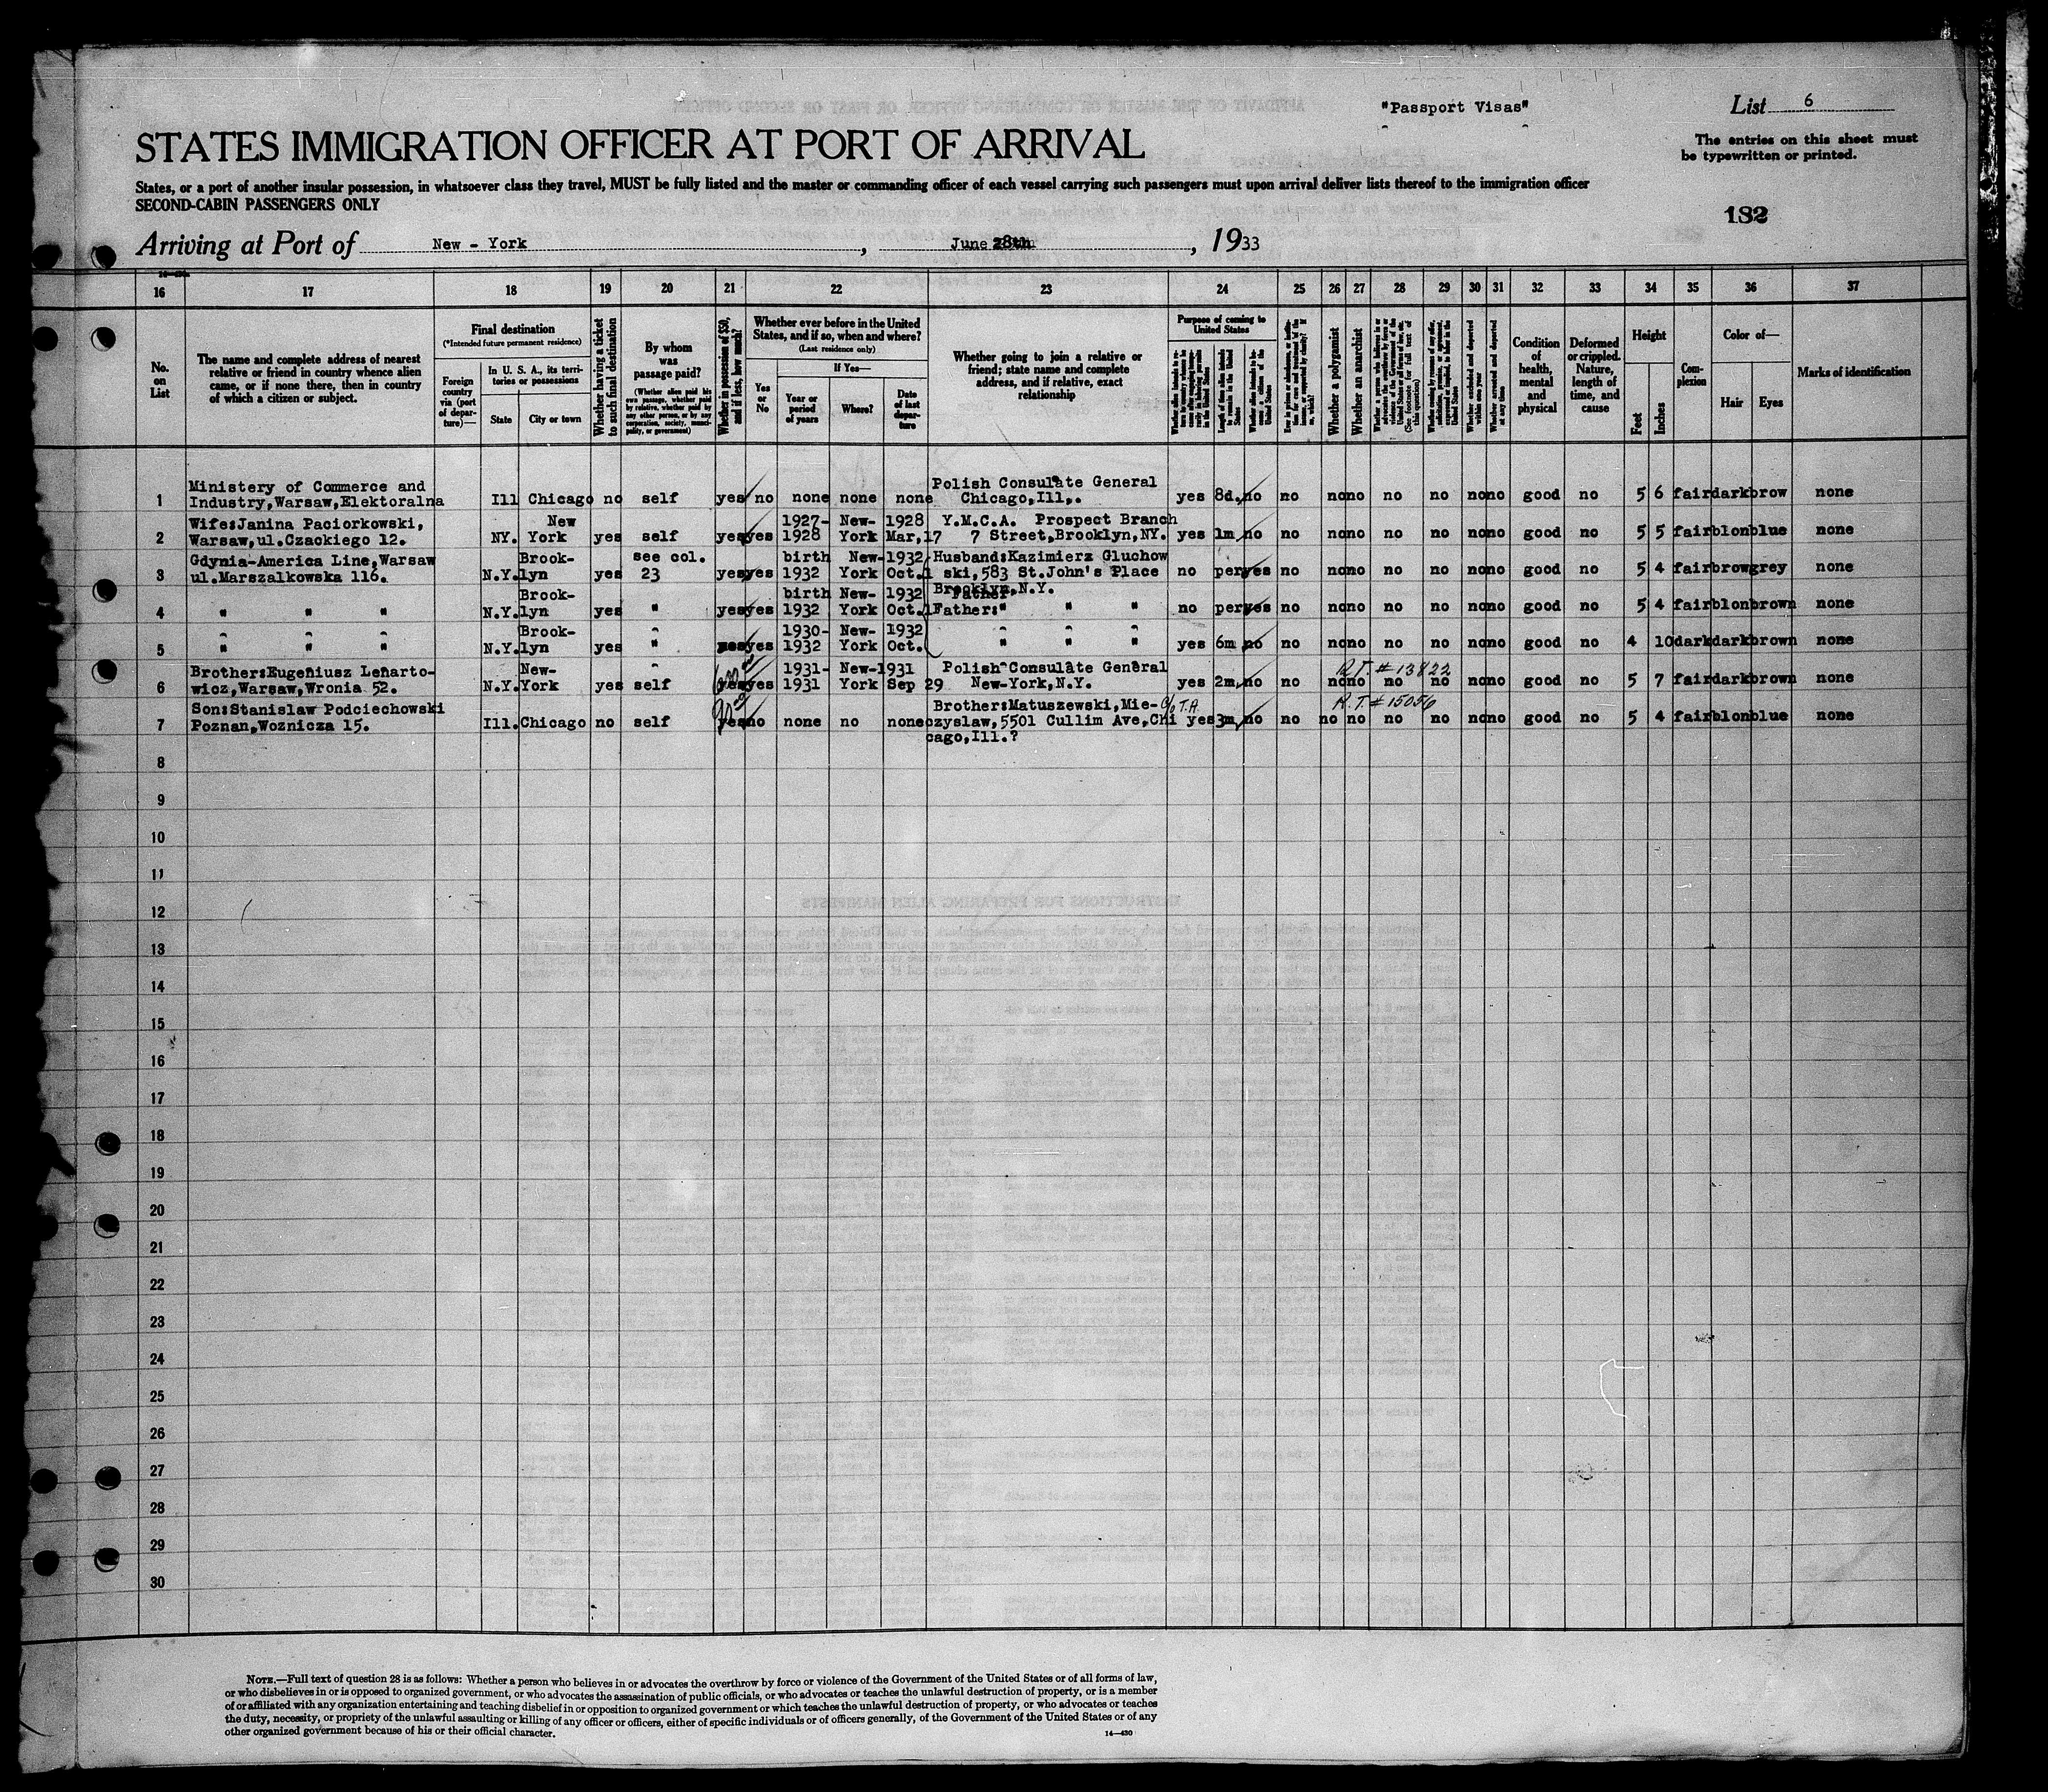 "Passport Visas"
List 6
STATES IMMIGRATION OFFICER AT PORT OF ARRIVAL
The entries on this sheet must
be typewritten or printed.
States, or a port of another insular possession, in whatsoever class they travel, MUST be fully listed and the master or commanding officer of each vessel carrying such passengers must upon arrival deliver lists thereof to the immigration officer
SECOND-CABIN PASSENGERS ONLY
182
Arriving at Port of New - York, June 28th, 1933
16 17 18 19 20 21 22 23 24 25 26 27 28 29 30 31 32 33 34 35 36 37
No.
on
List
The name and complete address of nearest
relative or friend in country whence alien
came, or if none there, then in country
of which a citizen or subject.
Final destination
(*Intended future permanent residence)
Foreign
country
via (port
of depar-
ture)—
In U. S. A., its terri-
tories or possessions
State
City or town
Whether having a ticket
to such final destination
By whom
was
passage paid?
(Whether alien paid his
own passage, whether paid
by relative, whether paid by
any other person, or by any
corporation, society, munici-
pality, or government)
Whether in possession of $50,
and if less, how much?
Whether ever before in the United
States, and if so, when and where?
(Last residence only)
Yes
or
No
If Yes—
Year or
period
of years
Where?
Date
of last
depar-
ture
Whether going to join a relative or
friend; state name and complete
address, and if relative, exact
relationship
Purpose of coming to
United States
Length of time alien intends
to remain in the United
States
Whether alien intends to be-
come a citizen of the
United States
Whether a polygamist
Whether an anarchist
Whether excluded and deported
within one year
Whether arrested and deported
at any time
Condition
of
health,
mental
and
physical
Deformed
or crippled.
Nature,
length of
time, and
cause
Height
Feet
Inches
Com-
plexion
Color of—
Hair
Eyes
Marks of identification
Ministery of Commerce and Polish Consulate General
1 Industry,Warsaw,Elektoralna Ill Chicago no self yes no none none none Chicago,Ill,. yes 8d. no no no no no no no no good no 5 6 fair dark brow none
Wife:Janina Paciorkowski, New 1927- New- 1928 Y.M.C.A. Prospect Branch
2 Warsaw,ul.Czackiego 12. NY. York yes self yes yes 1928 York Mar,17 7 Street,Brooklyn,NY. yes 1m no no no no no no no no good no 5 5 fair blon blue none
Gdynia-America Line,Warsaw Brook- see col. birth New- 1932 Husband:Kazimierz Gluchow
3 ul.Marszalkowska 116. N.Y. lyn yes 23 yes yes 1932 York Oct.1 ski,583 St.John's Place no per yes no no no no no no no good no 5 4 fair brow grey none
Brook- birth New- 1932 Brooklyn,N.Y.
4 " " " N.Y. lyn yes " yes yes 1932 York Oct.1 Father:" " " no per yes no no no no no no no good no 5 4 fair blon brown none
Brook- 1930- New- 1932
5 " " " N.Y. lyn yes " yes yes 1932 York Oct. " " " yes 6m no no no no no no no no good no 4 10 dark dark brown none
Brother:Eugeniusz Lenarto- New- 1931- New- 1931 Polish Consulate General R.T. # 13822
6 wicz,Warsaw,Wronia 52. N.Y. York yes self yes yes 1931 York Sep 29 New-York,N.Y. yes 2m no no no no no no no no good no 5 7 fair dark brown none
Son:Stanislaw Podciechowski Brother:Matuszewski,Mie- c/o T.A. R.T. # 15056
7 Poznan,Woznicza 15. Ill. Chicago no self yes no none no none czyslaw,5501 Cullim Ave,Chi yes 3m no no no no no no no no good no 5 4 fair blon blue none
cago,Ill.?
8
9
10
11
12
13
14
15
16
17
18
19
20
21
22
23
24
25
26
27
28
29
30
NOTE.—Full text of question 28 is as follows: Whether a person who believes in or advocates the overthrow by force or violence of the Government of the United States or of all forms of law,
or who disbelieves in or is opposed to organized government, or who advocates the assassination of public officials, or who advocates or teaches the unlawful destruction of property, or is a member
of or affiliated with any organization entertaining and teaching disbelief in or opposition to organized government or which teaches the unlawful destruction of property, or who advocates or teaches
the duty, necessity, or propriety of the unlawful assaulting or killing of any officer or officers, either of specific individuals or of officers generally, of the Government of the United States or of any
other organized government because of his or their official character.
14—430